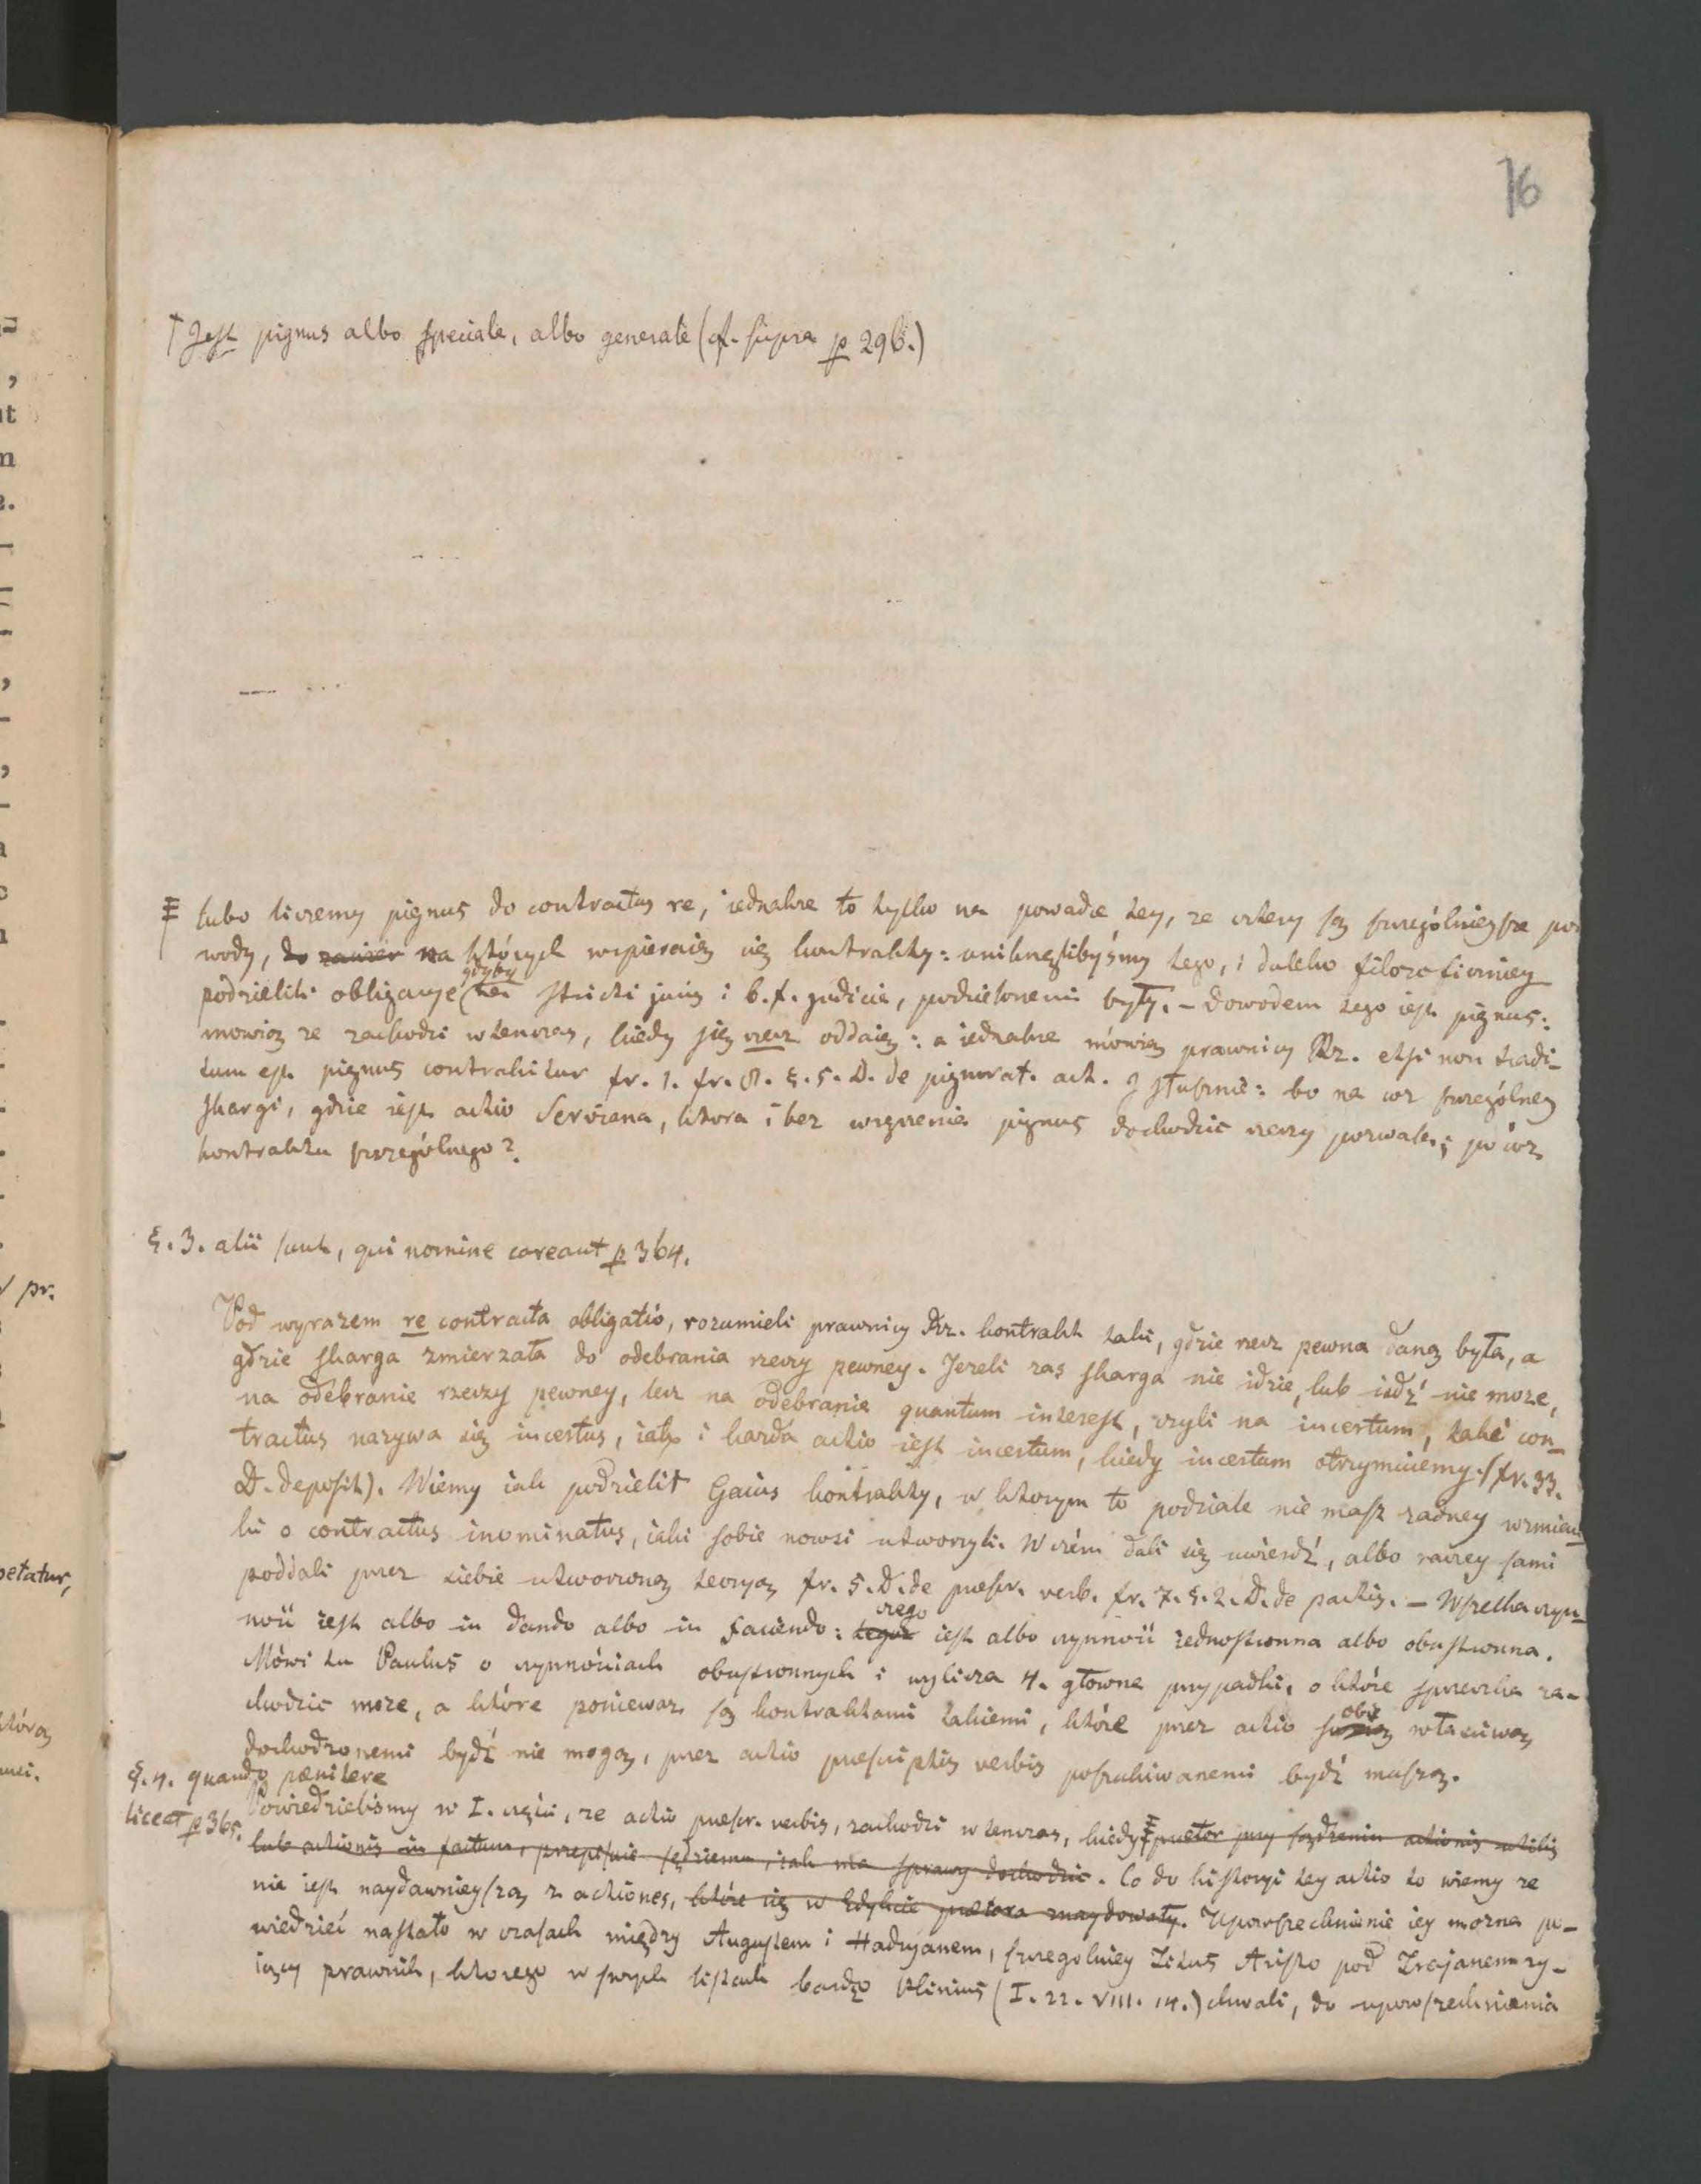 76
† Jest pignus albo speciale, albo generale (cf. supra p 296.)
‡ lubo liczemy pignus do contractus re, iednakze to tylko na powadze tey, ze cztery są szczególnieysze po-
wody, do zawier na których wspieraią się kontrakty: uniknęlibyśmy tego, i daleko filozoficzniey
podzielili obligacye, gdyby stricti juris i b. f. judicia, podzielonemi były. – Dowodem tego iest pignus:
mowią ze zachodzi wtenczas, kiedy się rzecz oddaię: a iednakze mówią prawnicy Rz. etsi non tradi-
tum est pignus contrahitur fr. 1. fr. 8. §. 5. D. de pignorat. act. I słusznie: bo na coz szczególney
skargi, gdzie iest actio Serviena, ktora i bez wręczenia pignus dochodzic rzeczy pozwala; po coz
kontraktu szczególnego?
§. 3. alii sunt, qui nomine careant p 364.
Pod wyrazem re contracta obligatio, rozumieli prawnicy Rz. kontrakt taki, gdzie rzecz pewna daną była, a
gdzie skarga zmierzała do odebrania rzeczy pewney. Jezeli zas skarga nie idzie, lub iśdź nie moze,
na odebranie rzeczy pewney, lecz na odebranie quantum interest, czyli na incertum, taki con-
tractus nazywa się incertus, iako i kazda actio iest incertum, kiedy incertum otrzymuiemy. (fr. 33.
D. deposit). Wiemy iak podzielił Gaius kontrakty, w ktorym to podziale nie masz zadney wzmian-
ki o contractus inominatus, iaki sobie nowsi utworzyli. W czém dali się uwieśdź, albo raczey sami
poddali przez siebie utworzoną teoryą fr. 5. D. de praescr. verb. fr. 7. §. 2. D. de pactis. – Wszelka czyn-
ność iest albo in dando albo in faciendo: tegoz czego iest albo czynność iednostronna albo obustronna.
Mówi tu Paulus o czynnościach obustronnych i wylicza 4. głowne przypadki, o które sprzeczka za-
chodzic moze, a które poniewaz są kontraktami takiemi, które przez actio obie właściwą
dochodzonemi bydź nie mogą, przez actio praescriptis verbis poszukiwanemi bydź muszą.
§. 4. quando pænitere
liceat p 365.
Powiedzielismy w I. części, ze actio praescr. verbis, zachodzi wtenczas, kiedy ‡ praetor przy sądzeniu actionis utilis
lub actionis in factum, przepisuie sędziemu, iak ma sprawy dochodzic. Co do historyi tey actio to wiemy ze
nie iest naydawnieyszą z actiones, które się w Edykcie praetora znaydowały. Upowszechnienie iey mozna po-
wiedzieć nastało w czasach między Augustem i Hadryanem, szczegolniey Titus Aristo pod Trajanem zy-
iący prawnik, ktorego w swych listach bardzo Plinius (I. 22. VIII. 14.) chwali, do upowszechnienia